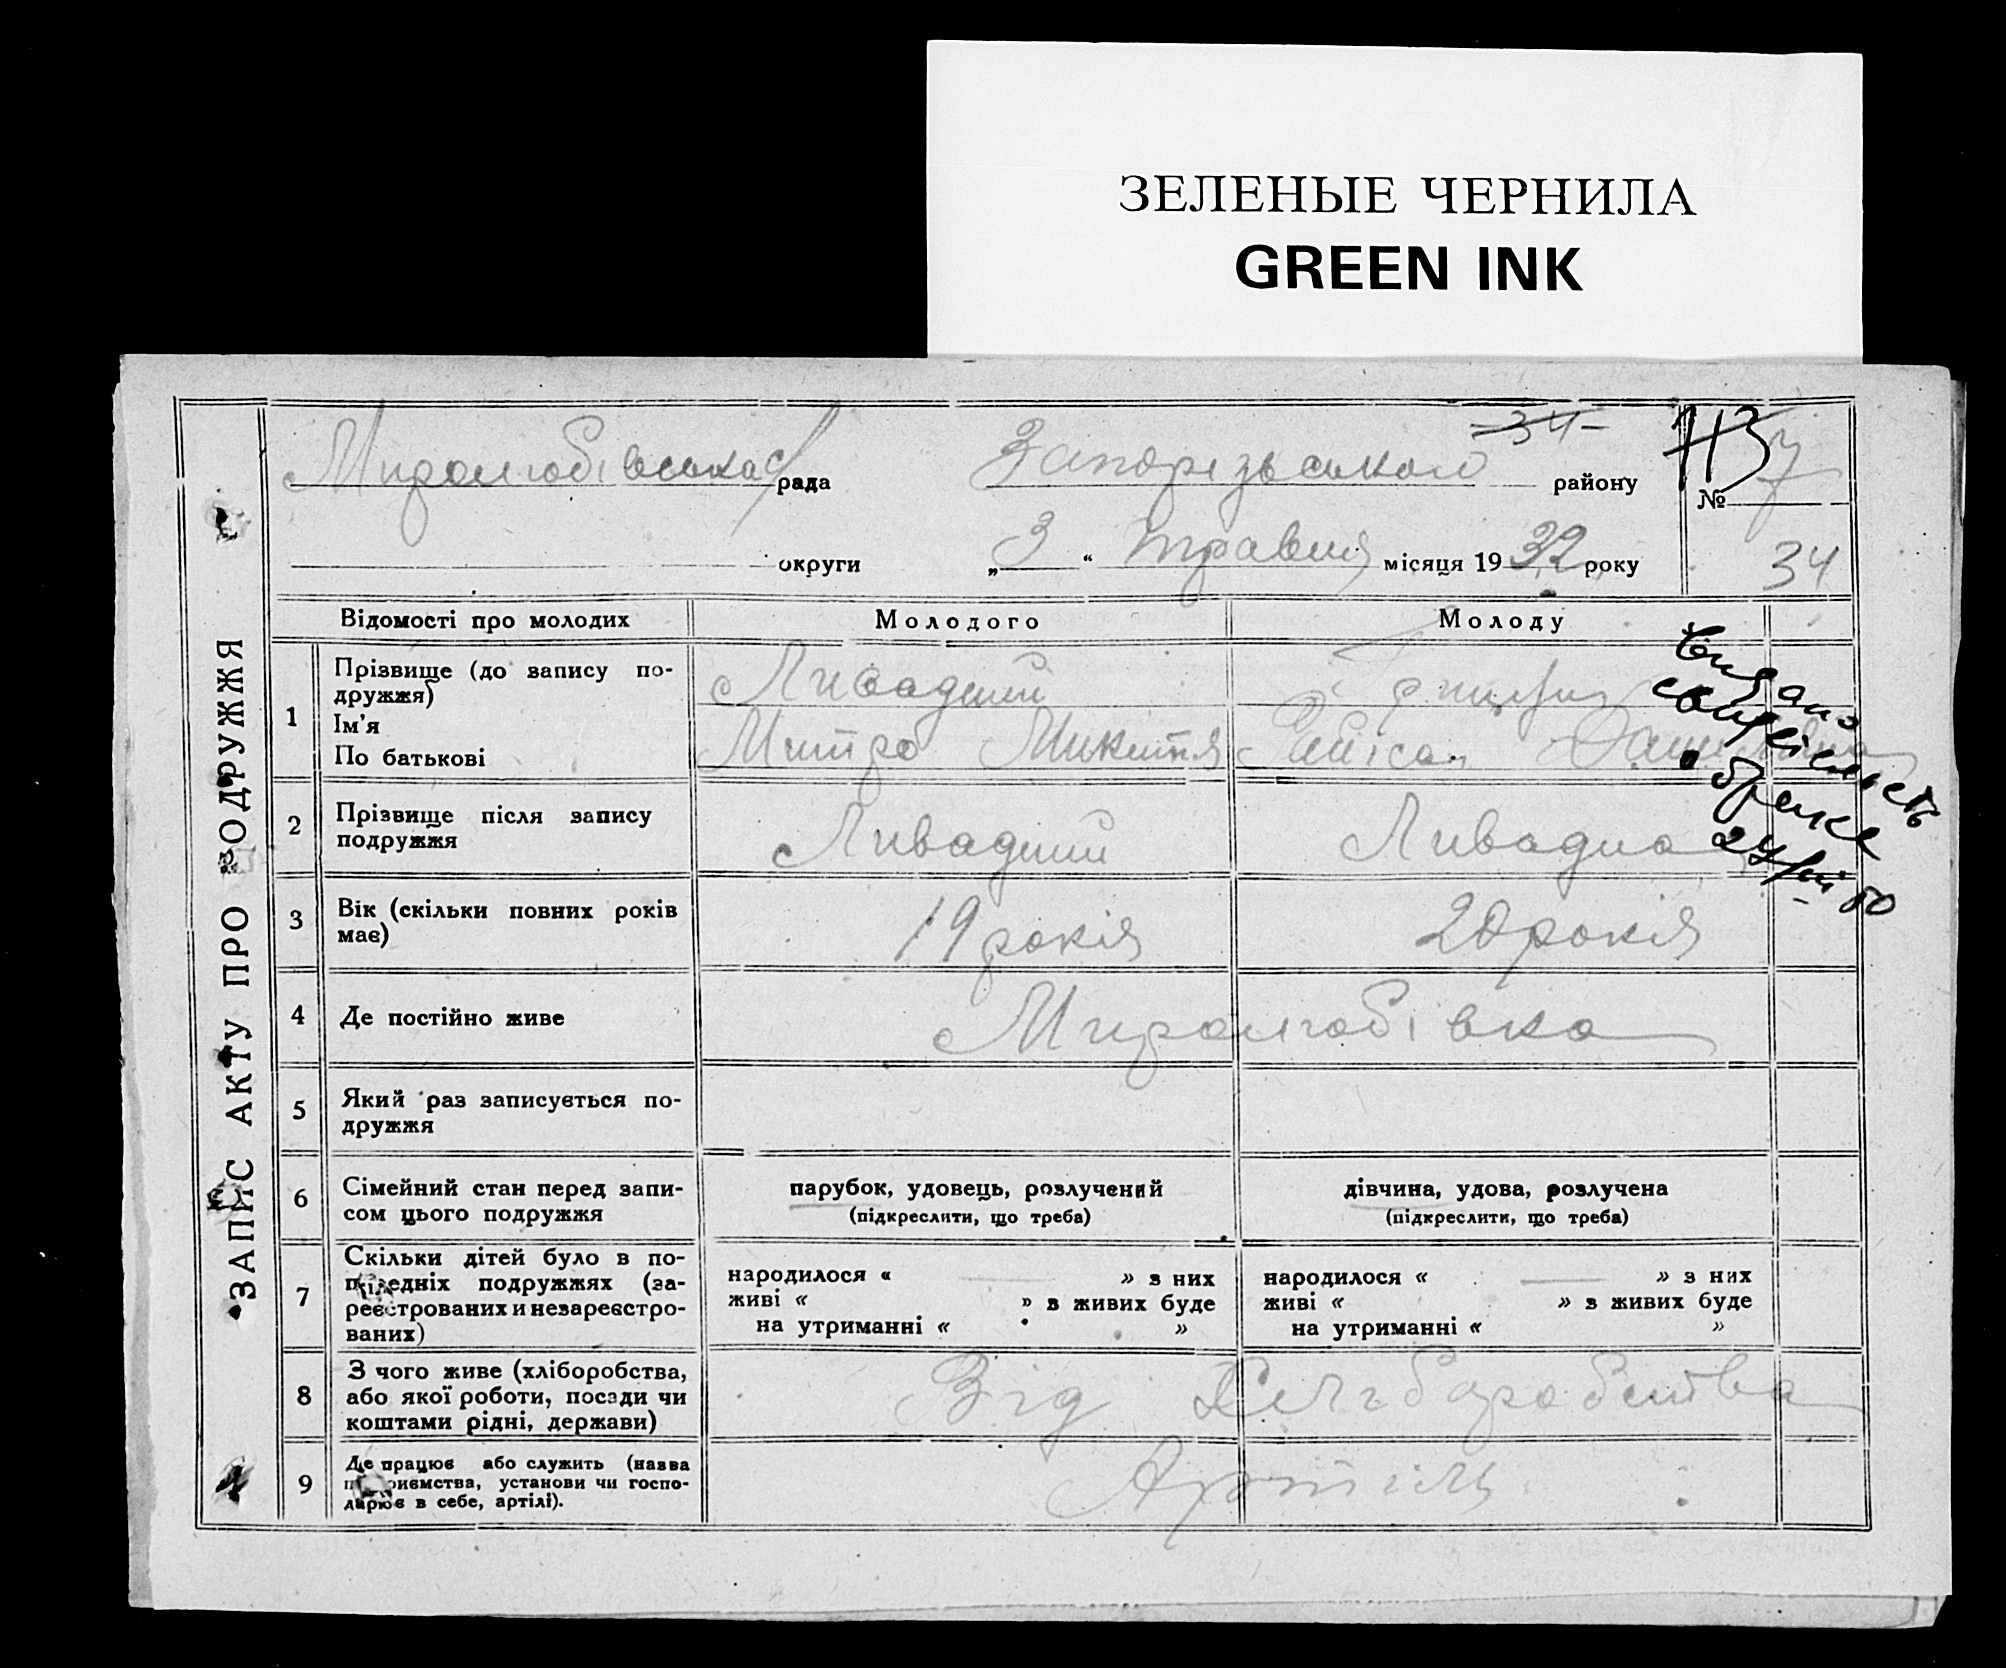 ЗЕЛЕНЫЕ ЧЕРНИЛА
GREEN INK
ЗАПИС АКТУ ПРО ПОДРУЖЖЯ
-34-
113
7
Миролюбівська с/рада Запорізького району №
округи „3“ травня місяця 1932 року
34
Відомості про молодих Молодого Молоду
1 Прізвище (до запису по-
дружжя)
Ім'я
По батькові
Ливадний
Митро Микитя
Раїса
2 Прізвище після запису
подружжя
Ливадний Ливадна
Видано
свидетельство
о браке
3 Вік (скільки повних років
має)
19 рокія 20 рокія
4 Де постійно живе Миролюбівка
5 Який раз записується по-
дружжя
6 Сімейний стан перед запи-
сом цього подружжя
парубок, удовець, розлучений
(підкреслити, що треба)
дівчина, удова, розлучена
(підкреслити, що треба)
7 Скільки дітей було в по-
передніх подружжях (за-
реєстрованих и незареєстро-
ваних)
народилося « — » з них
живі « » в живих буде
на утриманні « »
народилося « — » з них
живі « » в живих буде
на утриманні « »
8 З чого живе (хліборобства,
або якої роботи, посади чи
коштами рідні, держави)
Від
9 Де працює або служить (назва
підприємства, установи чи госпо-
дарює в себе, артілі).
Артіль